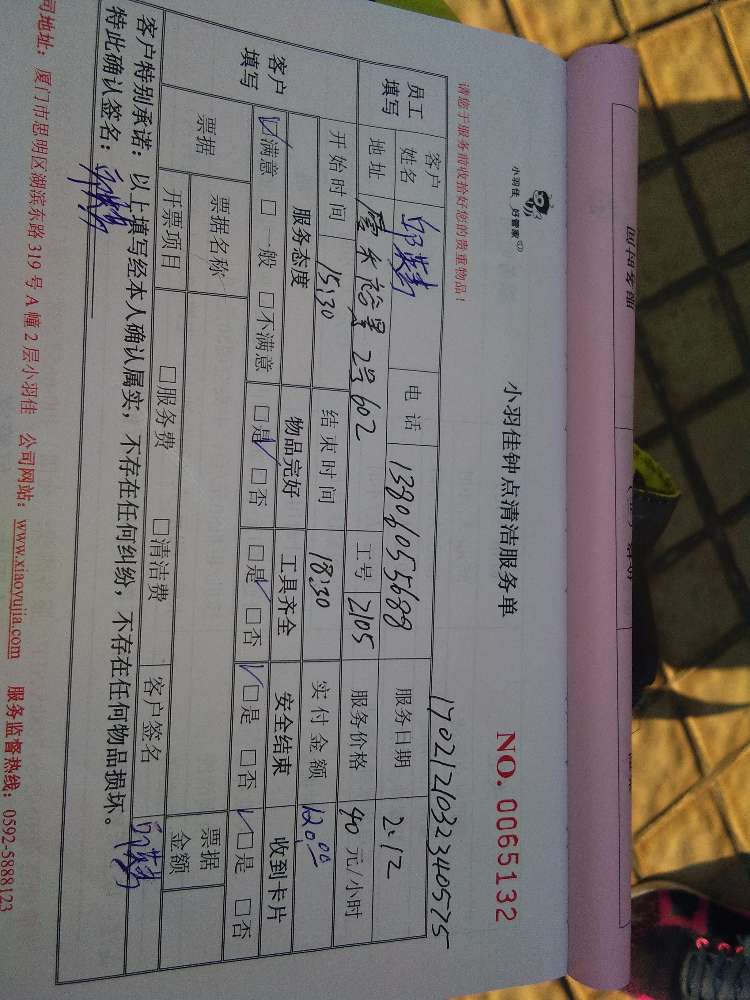 小羽佳 好管家
小羽佳钟点清洁服务单
NO. 0065132
请您于服务前收拾好您的贵重物品!
17021210323340575
员工填写 客户姓名 电话 13806055688 服务日期 2.12
地址 2号602 工号 2105 服务价格 40 元/小时
开始时间 15:30 结束时间 18:30 实付金额 120.00
客户填写 服务态度 物品完好 工具齐全 安全结束 收到卡片
☑满意 □一般 □不满意 □是 □否 □是 □否 □是 □否 □是 □否
票据 票据名称 票据金额
开票项目 □服务费 □清洁费 客户签名
客户特别承诺：以上填写经本人确认属实，不存在任何纠纷，不存在任何物品损坏。
特此确认签名：
司地址：厦门市思明区湖滨东路 319 号 A 幢 2 层小羽佳 公司网站：www.xiaoyujia.com 服务监督热线：0592-5888123